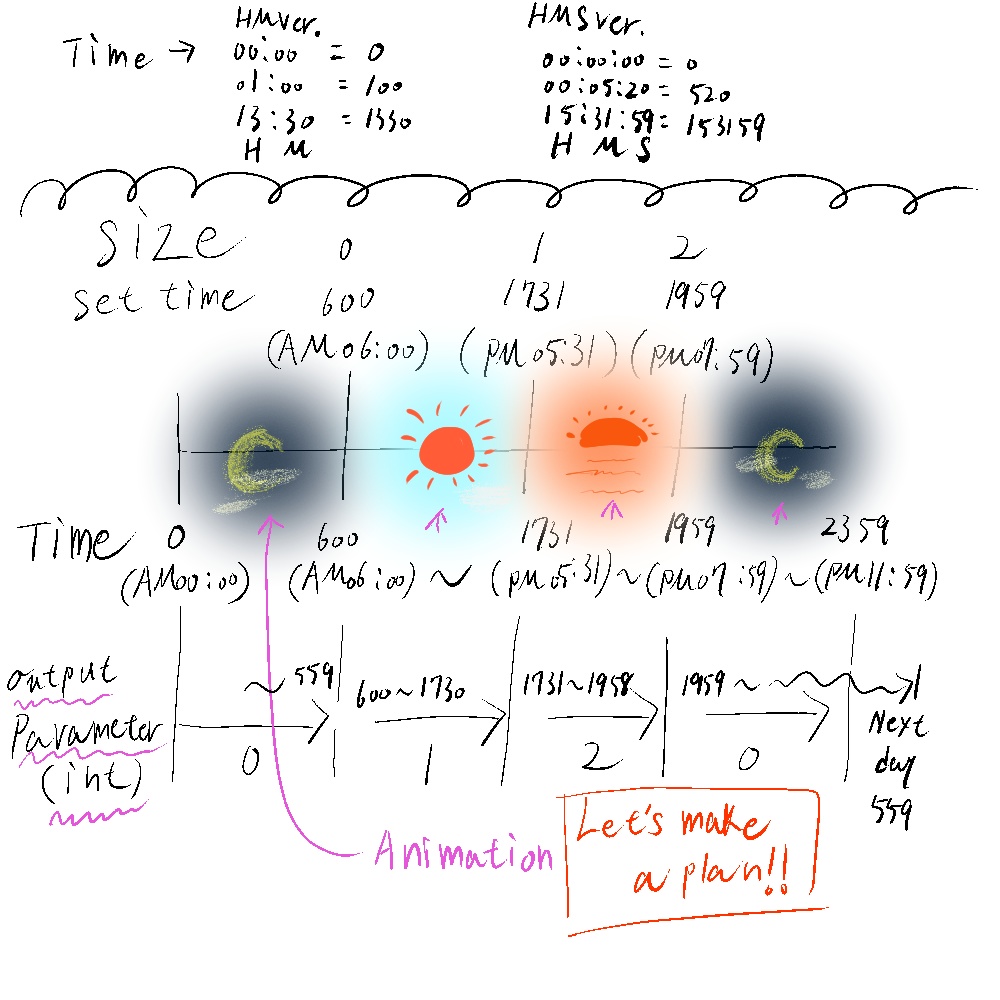 HMver.
HMSver.
Time →
00:00 = 0
01:00 = 100
13:30 = 1330
H M
00:00:00 = 0
00:05:20 = 520
15:31:59 = 153159
H M S
size 0 1 2
set time 600 1731 1959
(AM06:00) (PM05:31) (PM07:59)
Time 0 600 1731 1959 2359
(AM00:00) (AM06:00) ~ (PM05:31) ~ (PM07:59) ~ (PM11:59)
output
Parameter
(int)
~ 559 600~1730 1731~1958 1959~
0 1 2 0
Next
day
559
Animation
Let's make
a plan!!